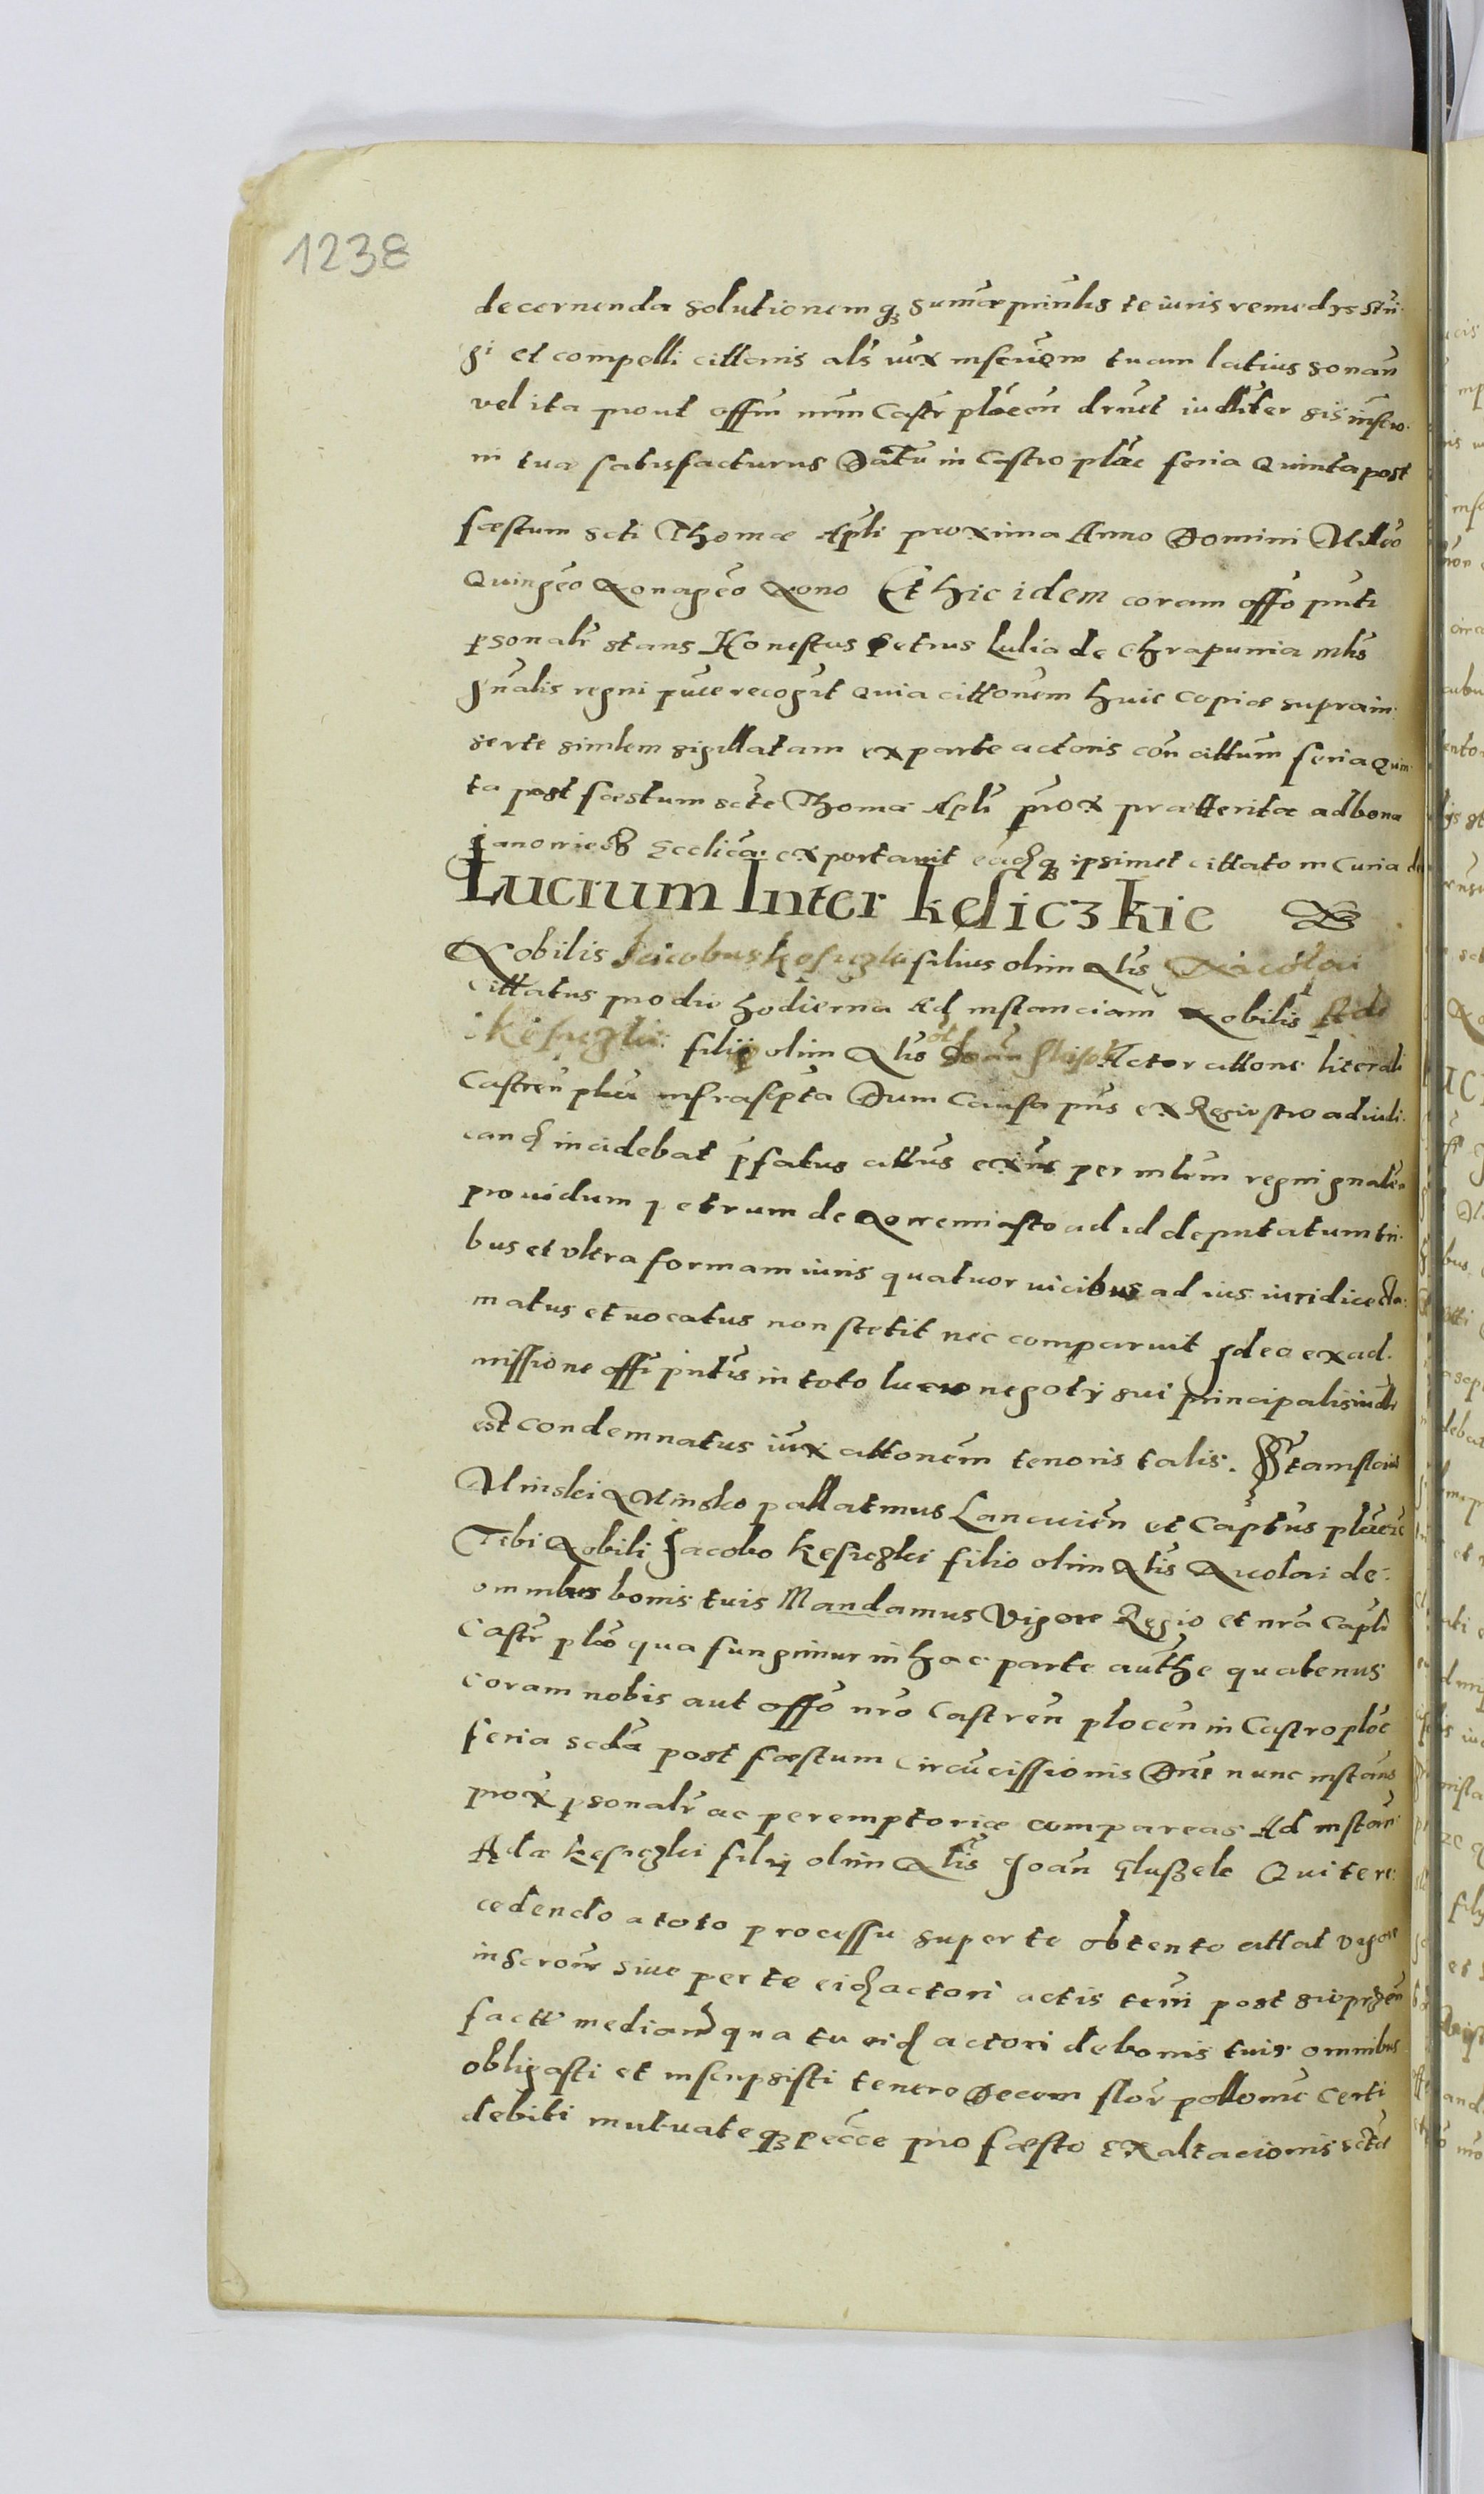 1238
decernenda solutionemq3 summæ prinlis te iuris remedys stri
gi et compelli cittonis als iux inscrionem tuam latius sonan
vel ita prout offm nrm Castr plocen drnet iudliter sis inscro
ni tuæ satisfacturus Datu in Castro ploc feria Quinta post
fæstum scti Thomæ Apli proxima Anno Domini Milleo
Quingeo Nonageo Nono Et hic idem coram offo pnti
psonalr stans Honestus Petrus Lulia de Chrapunia mlis
gnalis regni puce recogt Quia cittonem huic copiæ suprain
serte simlem sigillatam ex parte actoris con cittum feria Quin
ta post fæstum scte Thomæ Apli prox præteritæ ad bona
exportavit eadq3 ipsimet cittato in Curia
Lucrum Inter keliczkie
Nobilis Jacobus filius olim Nlis Nicolai
Cittatus pro die hodierna Ad instanciam Nobilis Adæ
filij olim Nlis Actor cittone literali
Castren plocen infrascpta Dum Causa pns ex Regestro ad iudi
cand incidebat pfatus cittus ex pns per mlem regni gnalem
providum petrum de ad id deputatum tri
bus et ultra formam iuris quatuor vicibus ad ius iuridice cla
matus et vocatus non stetit nec comparuit Ideo ex ad
missione offi pntis in toto lucro negotij sui principalis iudlr
est condemnatus iux cittonem tenoris talis. Stanislaus
Minski de Minsko pallatinus Lancicien et Captus plocen
Tibi Nobili Jacobo filio olim Nlis Nicolai de
omnibus bonis tuis Mandamus Vigore Regio et nra Capli
Castr ploc qua fungimur in hac parte authe quatenus
coram nobis aut offo nro Castren plocen in Castro ploc
feria scda post fæstum Circucissionis Dni nunc instans
prox psonalr ac peremptoriæ compareas Ad instan
Adæ filij olim Nlis Joan Qui te re
cedendo a toto processu super te obtento cittat vigore
inscronis sive per te eid actori actis post
facte median qua tu eid actori de bonis tuis omnibus
obligasti et inscripsisti tenere Decem flor pollonic certi
debiti mutuateq3 pecce pro fæsto Exaltacionis sctæ